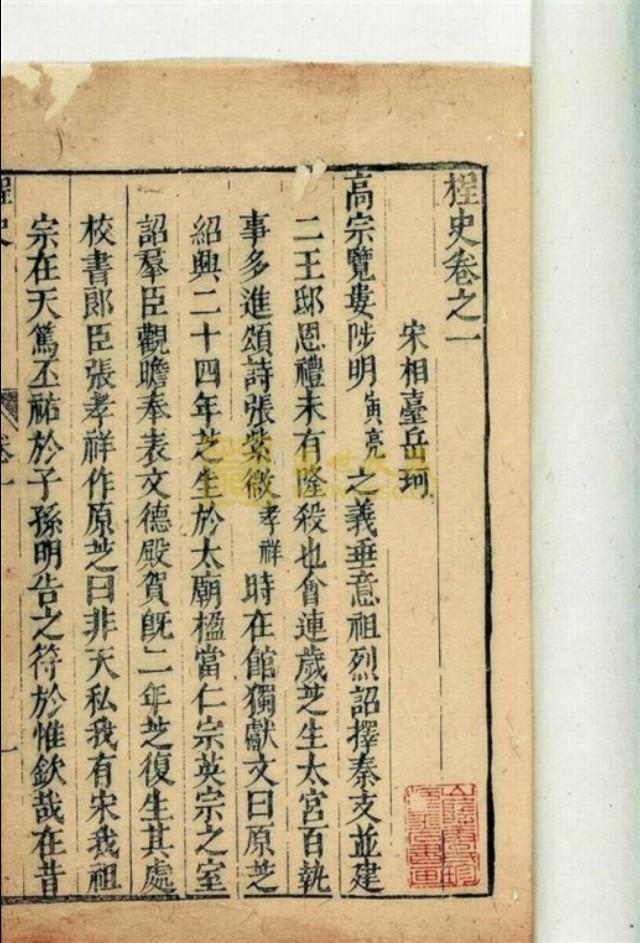 桯史卷之一
宋相臺岳珂
高宗覽婁陟明寅亮之義垂意祖烈詔擇秦支並建
二王邸恩禮未有隆殺也會連歲芝生太宮百執
事多進頌詩張紫微孝祥時在館獨獻文曰原芝
紹興二十四年芝生於太廟楹當仁宗英宗之室
詔羣臣觀瞻奉表文德殿賀既二年芝復生其處
校書郎臣張孝祥作原芝曰非天私我有宋我祖
宗在天篤丕祐於子孫明告之符於惟欽哉在昔
桯史
卷一
一